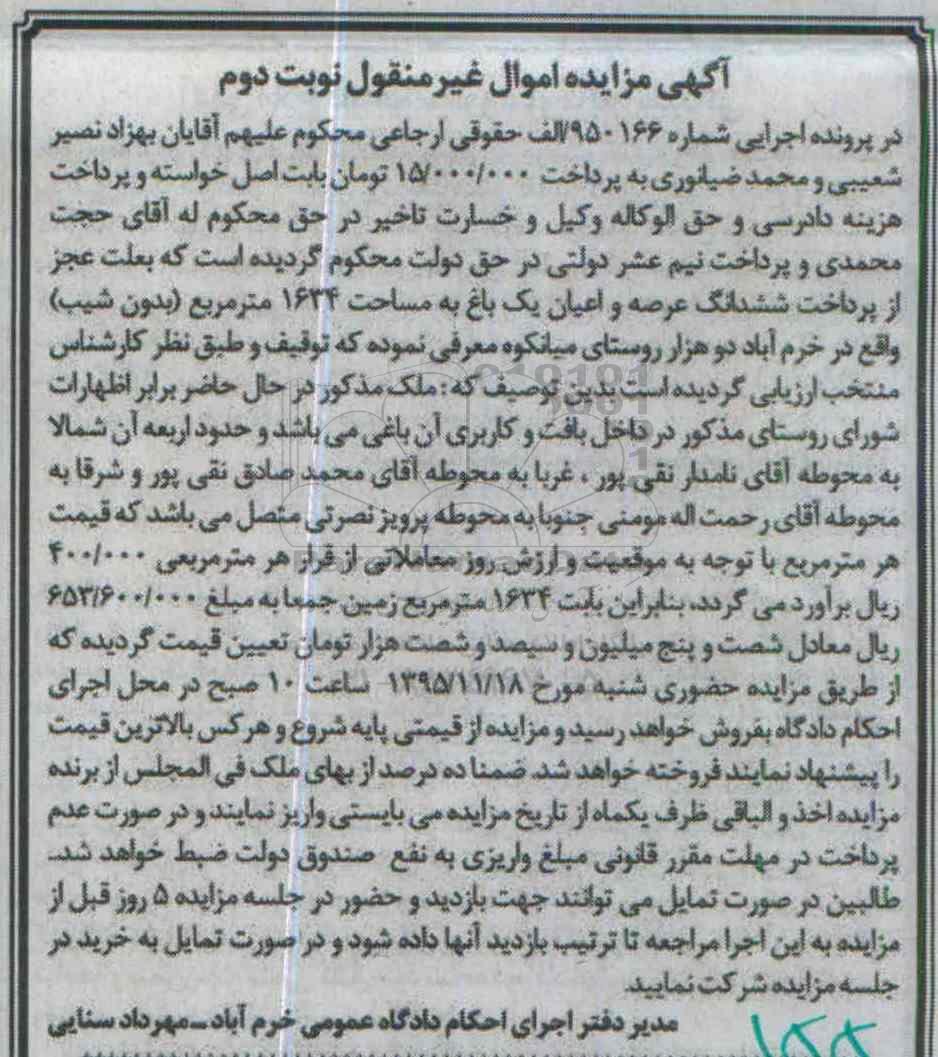 آگهی مزایده اموال غیر منقول نوبت دوم
در پرونده اجرایی شماره ۹۵۰۱۶۶/الف حقوقی ارجاعی محکوم علیهم آقایان بهزاد نصیر
شعیبی و محمد ضیانوری به پرداخت ۱۵/۰۰۰/۰۰۰ تومان بابت اصل خواسته و پرداخت
هزینه دادرسی و حق الوکاله وکیل و خسارت تاخیر در حق محکوم له آقای حجت
محمدی و پرداخت نیم عشر دولتی در حق دولت محکوم گردیده است که بعلت عجز
از پرداخت ششدانگ عرصه و اعیان یک باغ به مساحت ۱۶۳۴ مترمربع (بدون شیب)
واقع در خرم آباد دو هزار روستای میانکوه معرفی نموده که توقیف و طبق نظر کارشناس
منتخب ارزیابی گردیده است بدین توصیف که : ملک مذکور در حال حاضر برابر اظهارات
شورای روستای مذکور در داخل بافت و کاربری آن باغی می باشد و حدود اربعه آن شمالا
به محوطه آقای نامدار نقی پور ، غربا به محوطه آقای محمد صادق نقی پور و شرقا به
محوطه آقای رحمت اله مومنی جنوبا به محوطه پرویز نصرتی متصل می باشد که قیمت
هر مترمربع با توجه به موقعیت و ارزش روز معاملاتی از قرار هر مترمربعی ۴۰۰/۰۰۰
ریال برآورد می گردد، بنابراین بابت ۱۶۳۴ مترمربع زمین جمعا به مبلغ ۶۵۳/۶۰۰/۰۰۰
ریال معادل شصت و پنج میلیون و سیصد و شصت هزار تومان تعیین قیمت گردیده که
از طریق مزایده حضوری شنبه مورخ ۱۳۹۵/۱۱/۱۸ ساعت ۱۰ صبح در محل اجرای
احکام دادگاه بفروش خواهد رسید و مزایده از قیمتی پایه شروع و هر کس بالاترین قیمت
را پیشنهاد نمایند فروخته خواهد شد. ضمنا ده درصد از بهای ملک فی المجلس از برنده
مزایده اخذ و الباقی ظرف یکماه از تاریخ مزایده می بایستی واریز نمایند و در صورت عدم
پرداخت در مهلت مقرر قانونی مبلغ واریزی به نفع صندوق دولت ضبط خواهد شد.
طالبین در صورت تمایل می توانند جهت بازدید و حضور در جلسه مزایده ۵ روز قبل از
مزایده به این اجرا مراجعه تا ترتیب بازدید آنها داده شود و در صورت تمایل به خرید در
جلسه مزایده شرکت نمایید.
مدیر دفتر اجرای احکام دادگاه عمومی خرم آباد ـ مهرداد سنایی